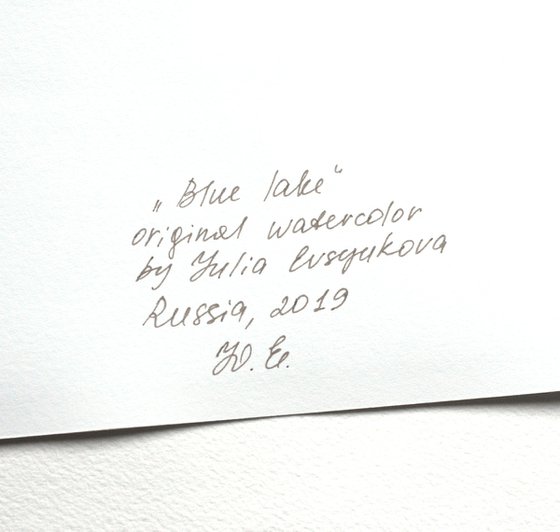 „Blue lake“
original watercolor
by Julia Evsyukova
Russia, 2019
Ю.Е.